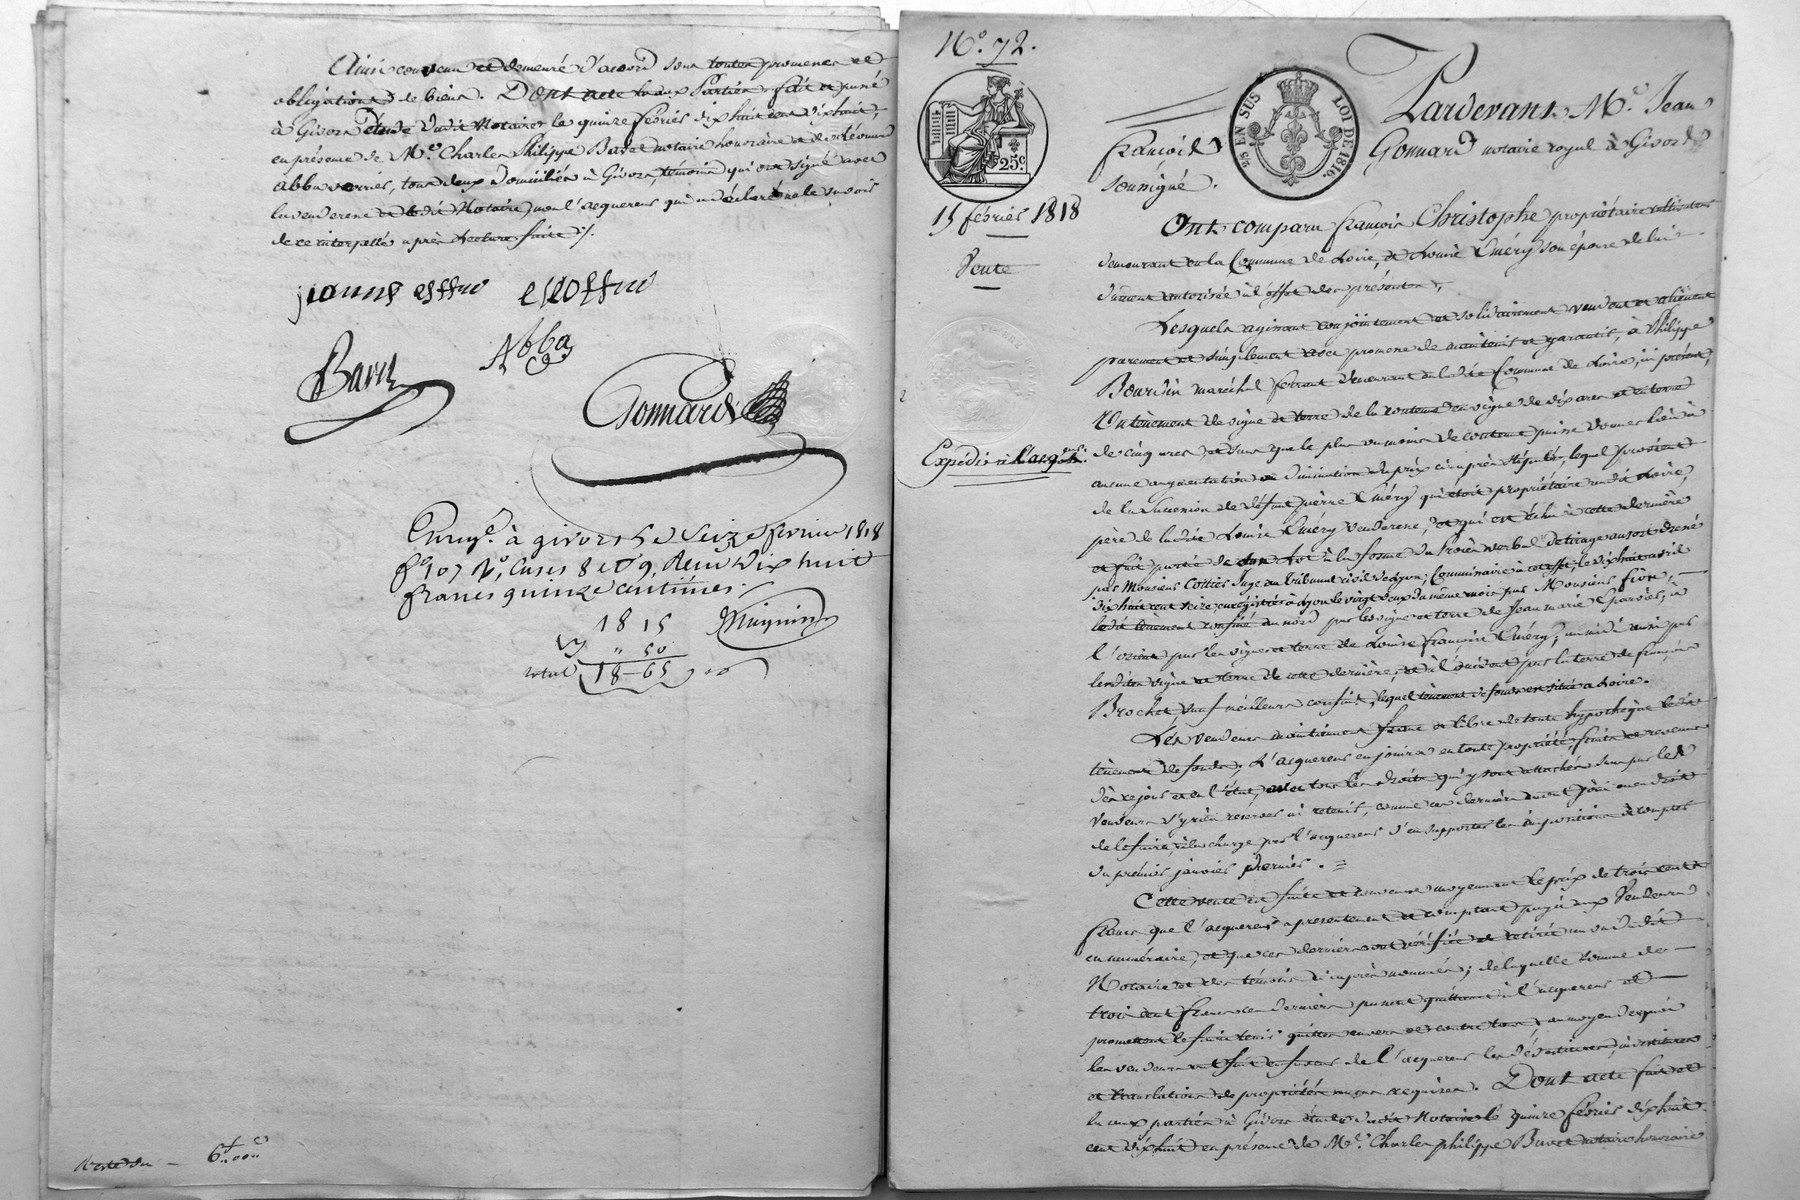 Ainsi convenu et demeuré d'acord sous toutes promenes et
obligations de biens. Dont acte lu aux Parties fait et passé
à Givors Etude dudit Notaire le quinze fevrier dix huit cent dixhuit,
en présence de Mr. Charles Philippe Baret notaire honoraire et de
Abba verrier, tous deux domiciliés à Givors, témoins qui ont signé avec
la venderesse et ledit Notaire, non l'acquereur qui a déclaré ne le savoir
de ce interpellé après lecture faite ./.
Abba
Gonnard
Enreg.é à givors le Seize fevrier 1818
fo 107 Vo, Cases 8 et 9, Reçu Dix huit
francs quinze centimes.
18 15
" 50
total 18-65
6 f "00 c
No. 72.
25 c.
25 EN SUS LOI DE 1816.
Pardevant Me. Jean
François Gonnard notaire royal à Givors
soussigné.
15 février 1818
Vente
Expédié à l'acqr.
Ont comparu François Christophe propriétaire cultivateur
demeurant en la Commune de Loire, et Louise Emery son épouse de lui
dûment autorisée à l'effet des présentes,
Lesquels agissant conjointement et solidairement vendent et aliènent
purement et simplement avec promesse de maintenir et garantir, à Philippe
Bourdin maréchal ferrant demeurant en ladite Commune de Loire, ici présent,
Un tènement de vigne et terre de la contenue en vigne de dix ares et en terre
de cinq ares, et sans que le plus ou moins de contenue puisse donner lieu à
aucune augmentation ou diminution du prix ci après stipulé, lequel provient
de la succession de défunt pierre Emery qui étoit propriétaire audit Loire,
père de ladite Louise Emery venderesse, et qui est échu à cette dernière
et fait partie de son lot à la forme du Procès verbal de tirage au sort dressé
par Monsieur Cottier Juge au Tribunal civil de Lyon, Commissaire à cet effet, le dix huit avril
dix huit cent seize enregistré à Lyon le vingt deux du même mois par Monsieur
ledit tènement confiné au nord par les vigne et terre de Jean marie
l'orient par les vigne et terre de Louise françoise Emery, au midi aussi par
lesdites vigne et terre de cette dernière, et à l'occident par la terre de françois
Brochet, sauf meilleurs confins, lequel tènement de fonds est situé à Loire.
Les vendeurs maintiennent franc et libre de toute hypothèque ledit
tènement de fonds; L'acquereur en jouira en toute propriété, fruits et revenus
dès ce jour et en l'état, avec tous les droits qui y sont attachés sans par les
vendeurs s'y rien reserver ni retenir, comme ces derniers en ont joui ou eu droit
de le faire, à la charge par l'acquereur d'en supporter les impositions à compter
du premier janvier dernier.
Cette vente est faite et convenue moyennant le prix de trois cents
francs que l'acquereur a presentement et comptant payé aux Vendeurs
en numéraire, et que ces derniers ont vérifiée et retirée au vu dudit
Notaire et des témoins ci après nommés; de laquelle somme de
trois cent francs ces derniers passent quittance à l'acquereur et
promettent le faire tenir quitte envers et contre tous, au moyen de quoi
les vendeurs ont fait en faveur de l'acquereur les dévestitures, investitures
et translations de propriété en cas requises. Dont acte fait et
lu aux parties à Givors étude dudit Notaire le quinze février dix huit
cent dix huit en présence de Mr. Charles philippe Baret notaire honoraire